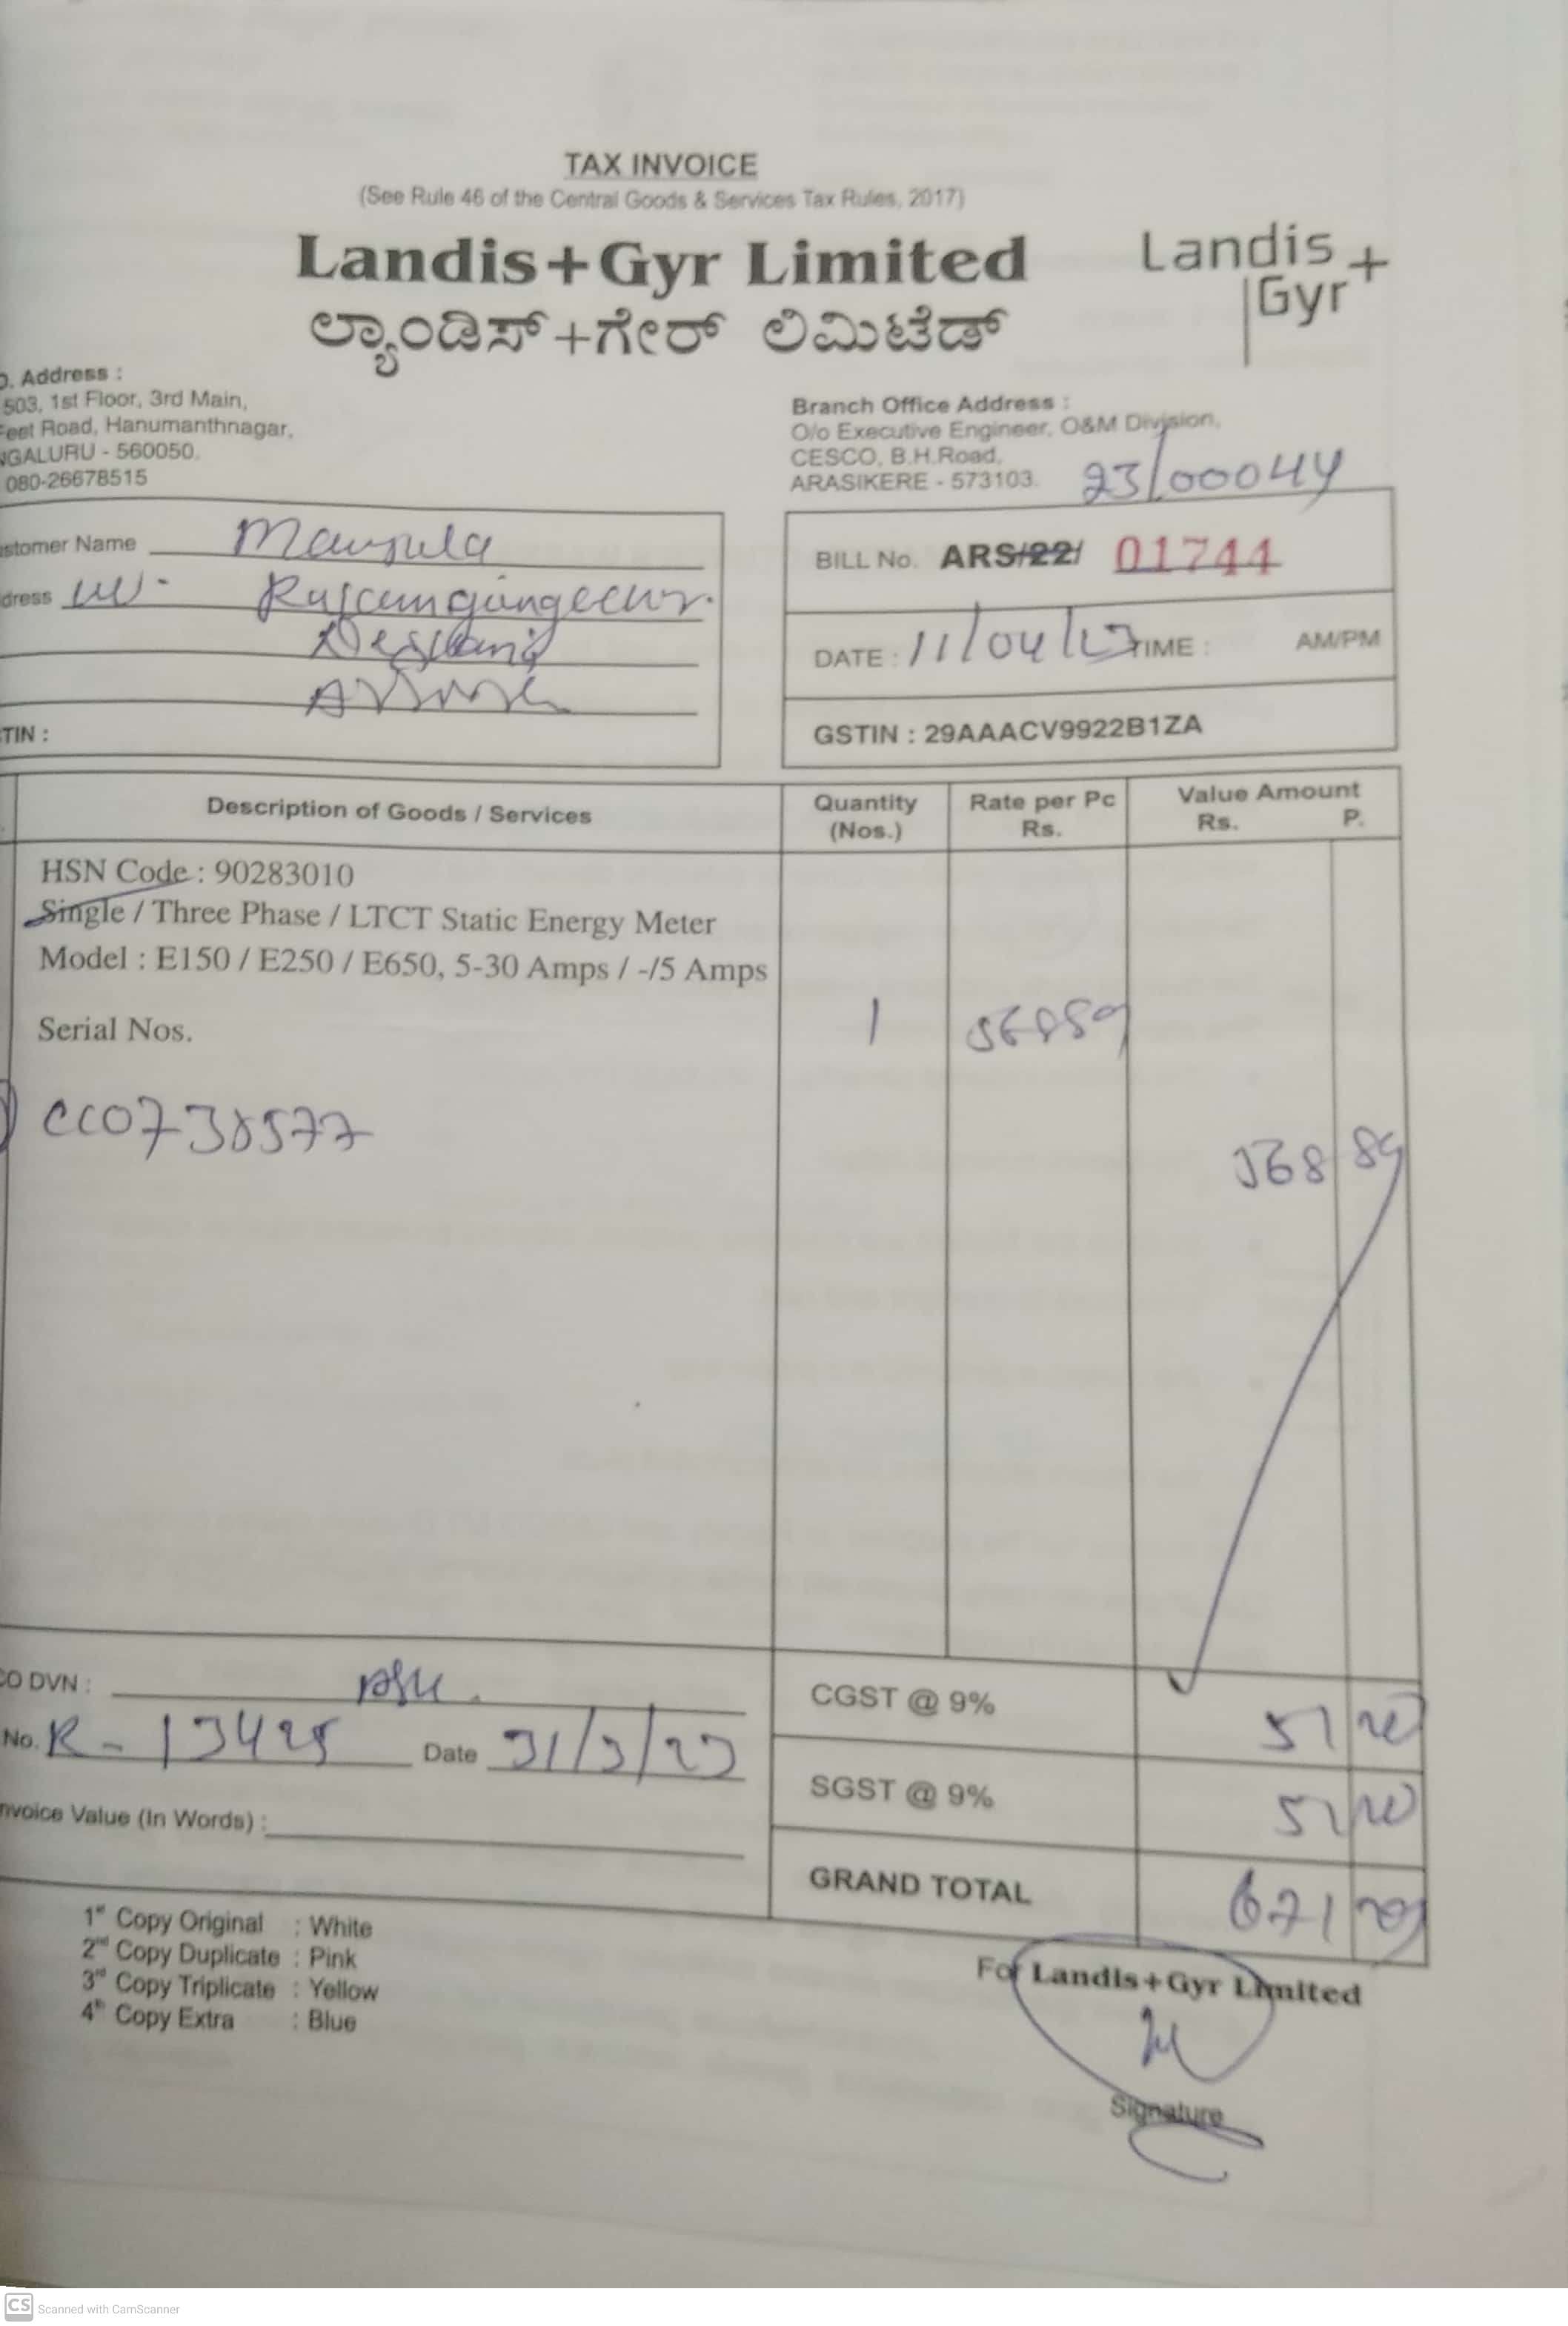 TAX INVOICE
(See Rule 46 of the Central Goods & Services Tax Rules, 2017)
Landis+Gyr Limited
ಲ್ಯಾಂಡಿಸ್+ಗೇರ್ ಲಿಮಿಟೆಡ್
Landis+
Gyr
Address :
503, 1st Floor, 3rd Main,
Road, Hanumanthnagar,
560050.
080-26678515
Branch Office Address :
O/o Executive Engineer, O&M Division,
CESCO, B.H.Road,
ARASIKERE - 573103.
23/000044
Name Manjula
BILL No. ARS/22/ 01744
DATE : 11/04/23 TIME : AM/PM
GSTIN : 29AAACV9922B1ZA
Description of Goods / Services
Quantity (Nos.)
Rate per Pc Rs.
Value Amount Rs. P.
HSN Code : 90283010
Single / Three Phase / LTCT Static Energy Meter
Model : E150 / E250 / E650, 5-30 Amps / -/5 Amps
Serial Nos.
1 56889
568 89
DVN :
No. R- 13425 Date 31/3/23
CGST @ 9% 51 20
SGST @ 9% 51 20
Value (In Words) :
GRAND TOTAL 671 29
1st Copy Original : White
2nd Copy Duplicate : Pink
3rd Copy Triplicate : Yellow
4th Copy Extra : Blue
For Landis+Gyr Limited
Signature
CS Scanned with CamScanner